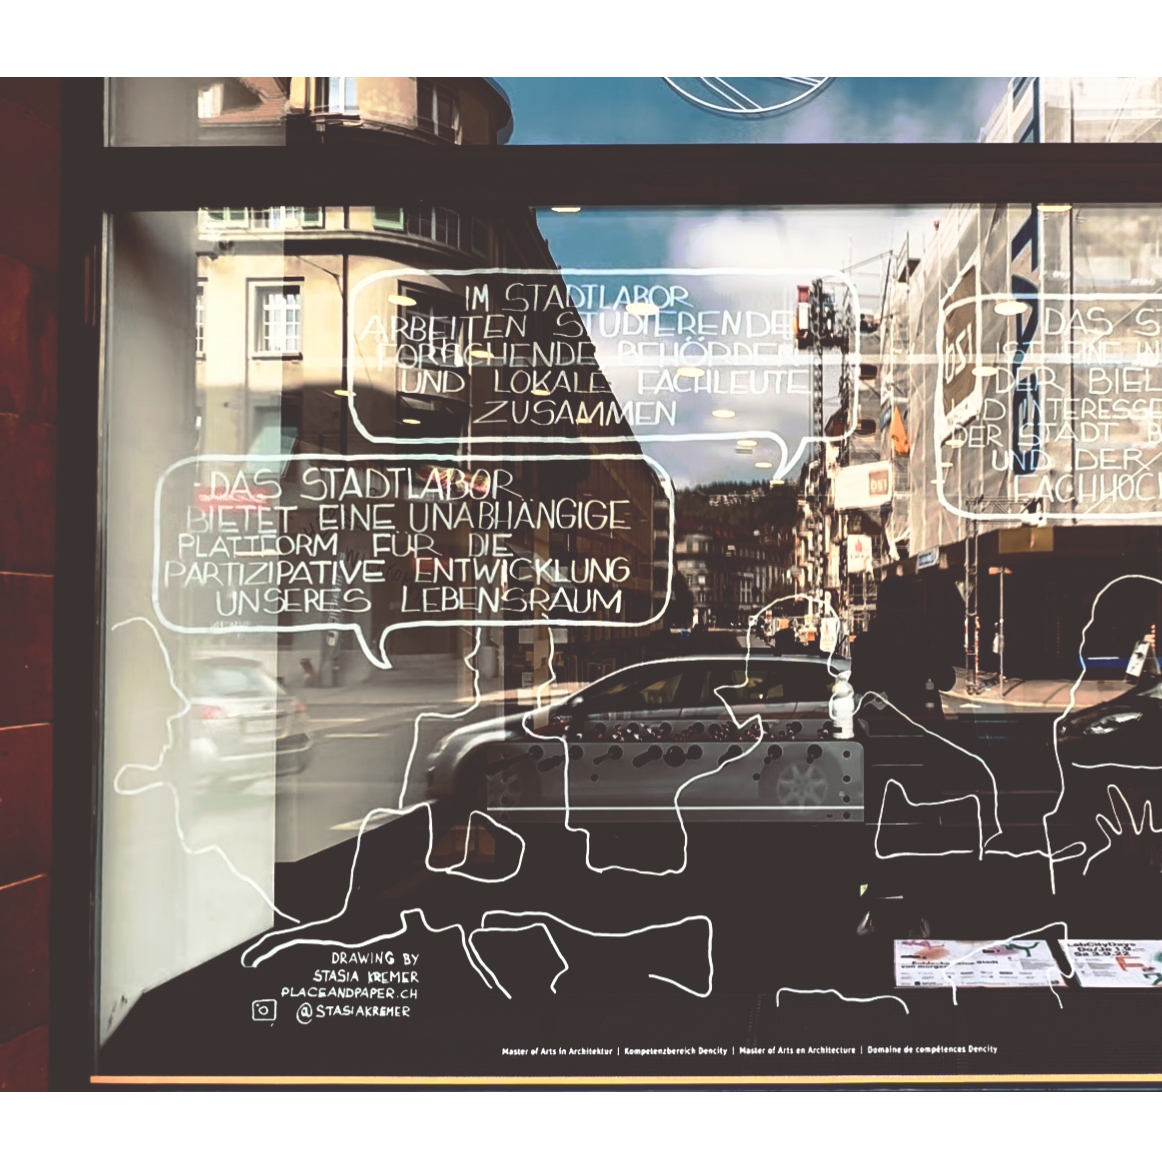 IM STADTLABOR
ARBEITEN STUDIERENDE
FORSCHENDE BEHÖRDEN
UND LOKALE FACHLEUTE
ZUSAMMEN
DAS STADTLABOR
BIETET EINE UNABHÄNGIGE
PLATTFORM FÜR DIE
PARTIZIPATIVE ENTWICKLUNG
UNSERES LEBENSRAUM
DAS
IST EINE
DER BIEL
DER STADT
UND DER
DRAWING BY
STASIA KREMER
PLACEANDPAPER.CH
@STASIAKREMER
LabCityDays
Do/Je 1.9.
Sa 3.9.22
Master of Arts in Architektur | Kompetenzbereich Dencity | Master of Arts en Architecture | Domaine de compétences Dencity